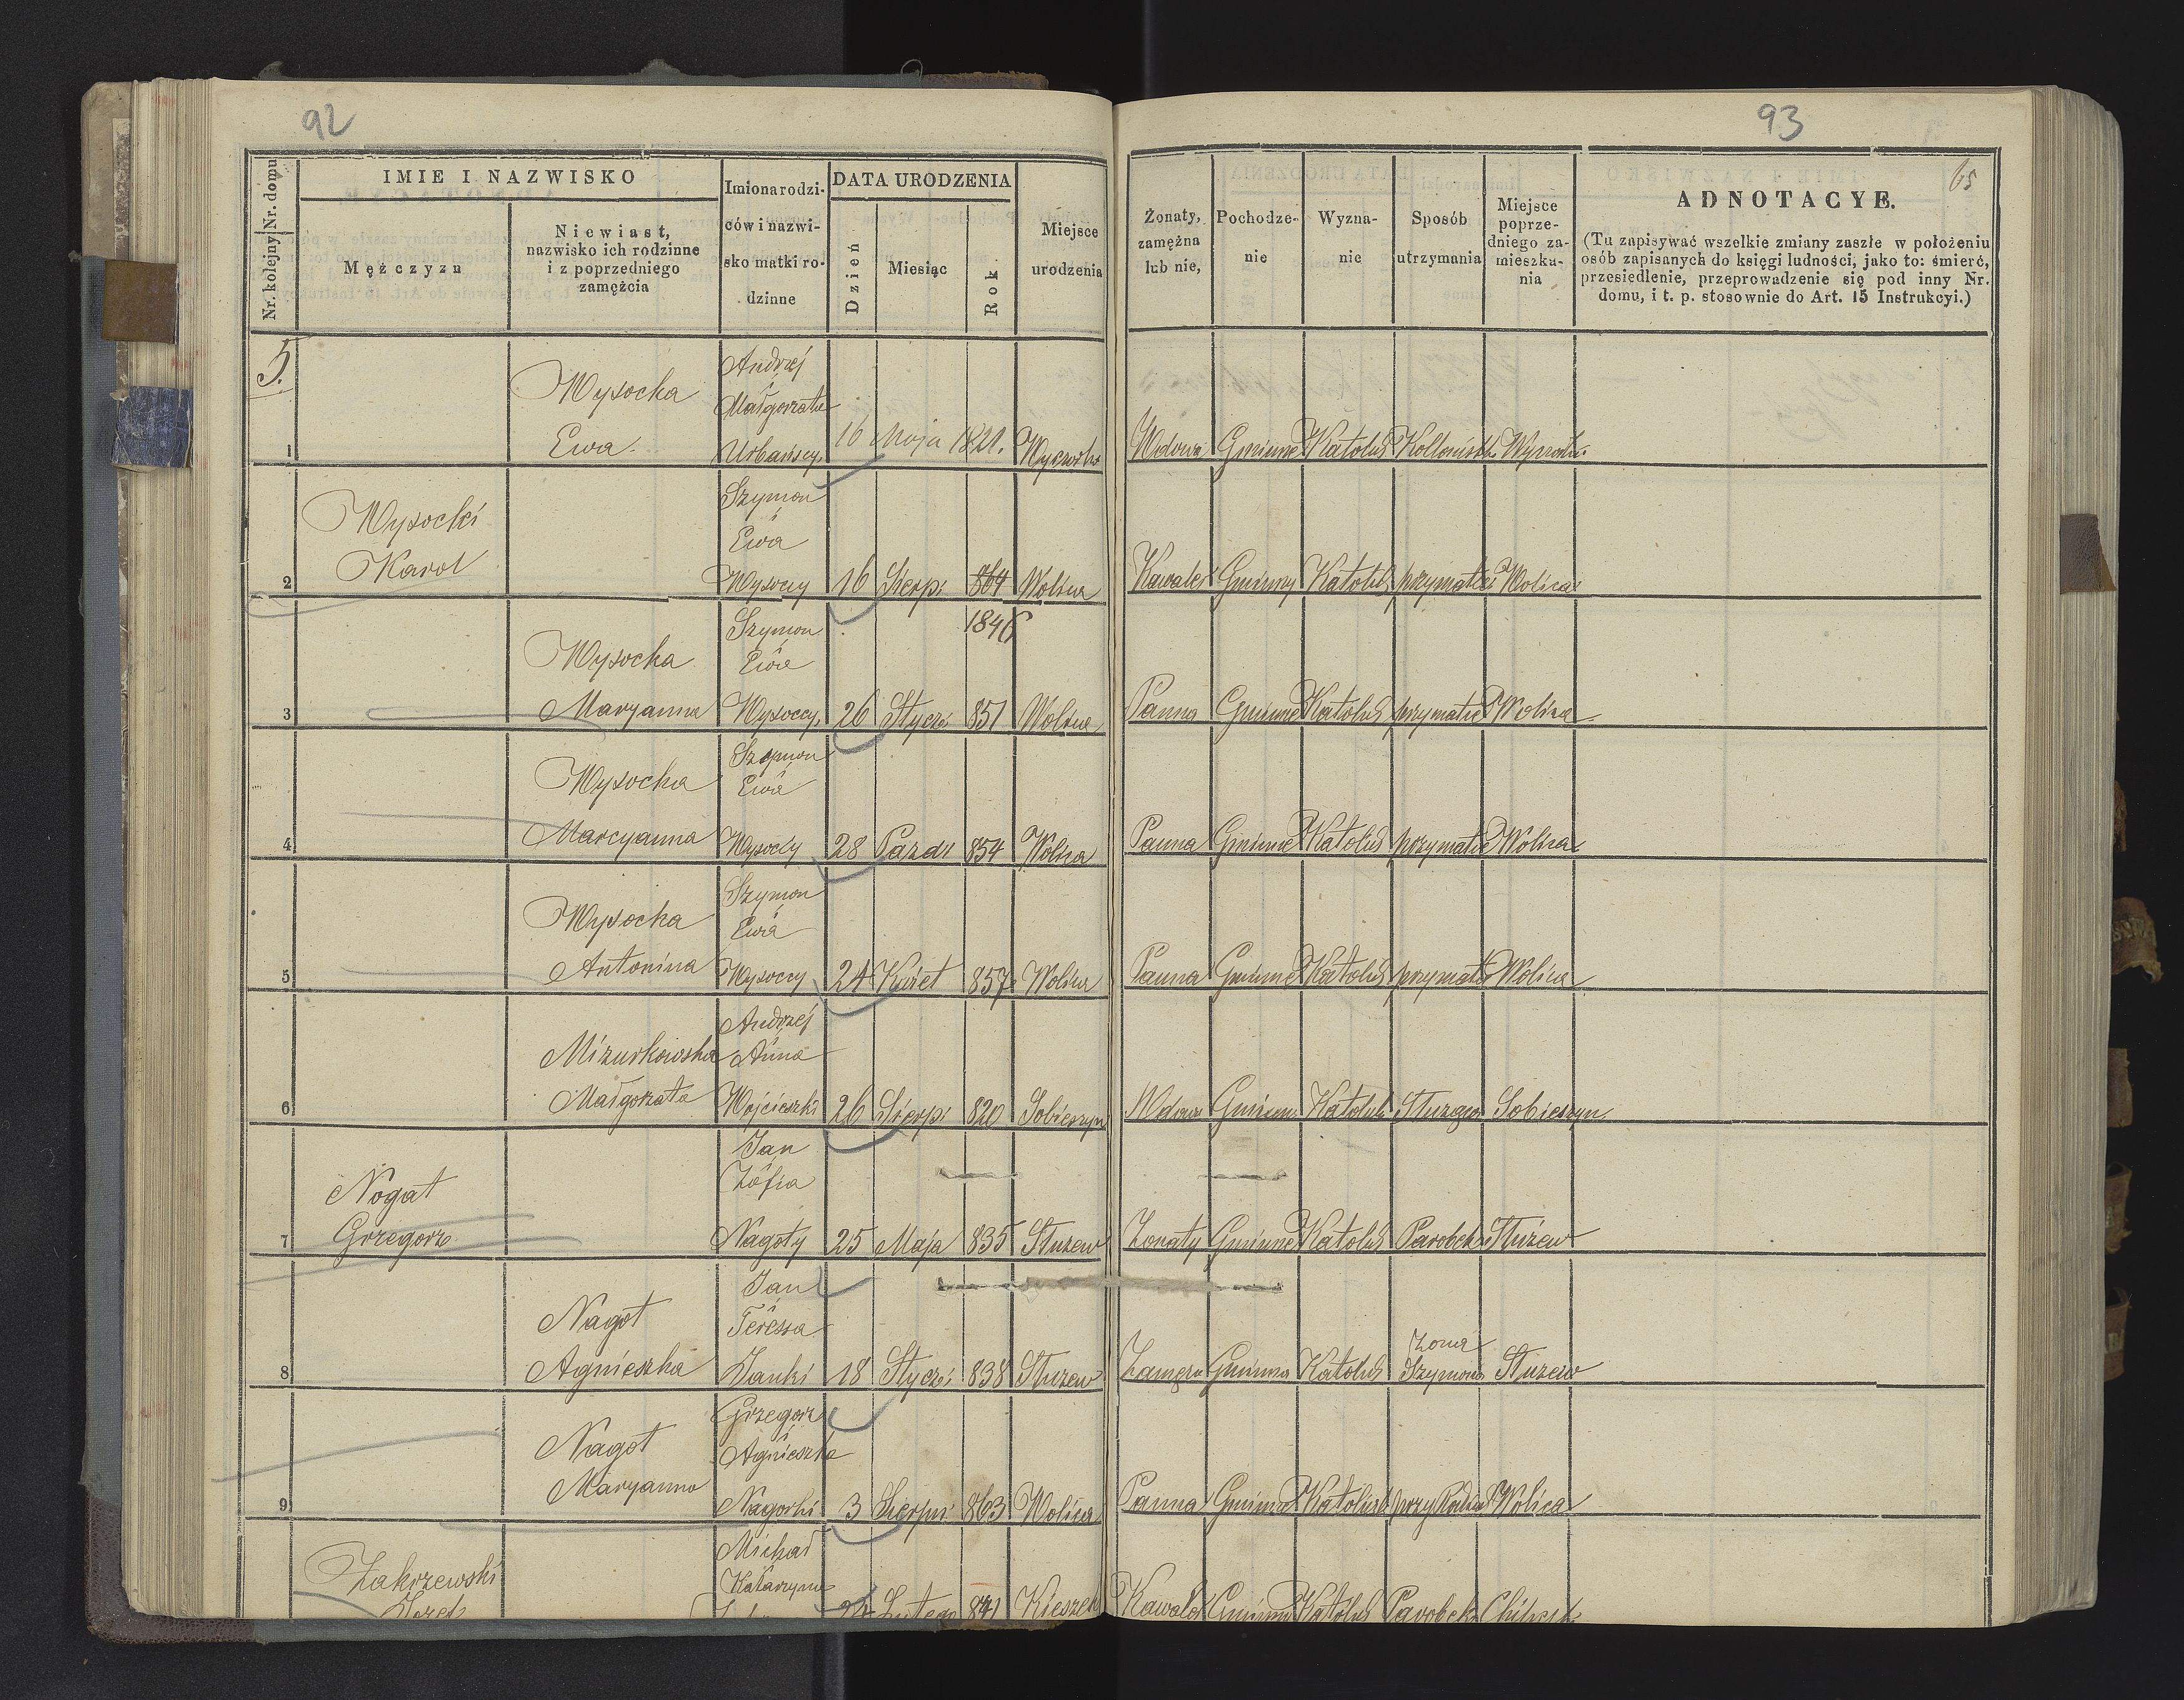 92
93
65
Nr. kolejny Nr. domu
IMIE I NAZWISKO
Mężczyzn
Niewiast,
nazwisko ich rodzinne
i z poprzedniego
zamężcia
Imiona rodzi-
ców i nazwi-
sko matki ro-
dzinne
DATA URODZENIA
Dzień
Miesiąc
Rok
Miejsce
urodzenia
Żonaty,
zamężna
lub nie,
Pochodze-
nie
Wyzna-
nie
Sposób
utrzymania
Miejsce
poprze-
dniego za-
mieszka-
nia
ADNOTACYE.
(Tu zapisywać wszelkie zmiany zaszłe w położeniu
osób zapisanych do księgi ludności, jako to: śmierć,
przesiedlenie, przeprowadzenie się pod inny Nr.
domu, i t. p. stosownie do Art. 15 Instrukcyi.)
5.
Wysocka Andrzej
i
Małgorzata
1 Ewa Urbańscy 16 Maja 1821. Wdowa Gminne Katolik
Wysocki Szymon
i
Ewa
2 Karol Wysoccy 16 Sierp: 864 Wolica Kawaler Gminny Katolik przymatce Wolica
1846
Wysocka Szymon
Ewa
3 Maryanna Wysoccy 26 Stycz: 851 Wolica Panna Gminne Katolik przymatce Wolica
Wysocka Szymon
Ewa
4 Marcyanna Wysoccy 28 Pazdz 854 Wolica Panna Gminne Katolik przymatce Wolica
Wysocka Szymon
Ewa
5 Antonina Wysoccy 24 Kwiet 857 Wolica Panna Gminne Katolik przymatce Wolica
Mizurkowska Andrzej
Anna
6 Małgorzata Wojcieszki 26 Sierp: 820 Sobieszyn Wdowa Gminne Katolik Sobieszyn
Nogat Jan
Zofia
7 Grzegorz Nagoty 25 Maja 835 Stuzew Żonaty Gminne Katolik Parobek Stużew
Nagot Jan
i
Teressa
Żona
8 Agnieszka Janki 18 Stycz: 838 Stuzew Zamęzn Gminna Katolik Szymona Stuzew
Nagot Grzegorz
i
Agnieszka
9 Maryanna Nagorki 3 Sierpn: 863 Wolica Panna Gminna Katolicka przy Rodzic Wolica
Zakrzewski Michał
Katarzyna
Jozef 24 Lutego 841 Kawaler Gminny Katolik Parobek